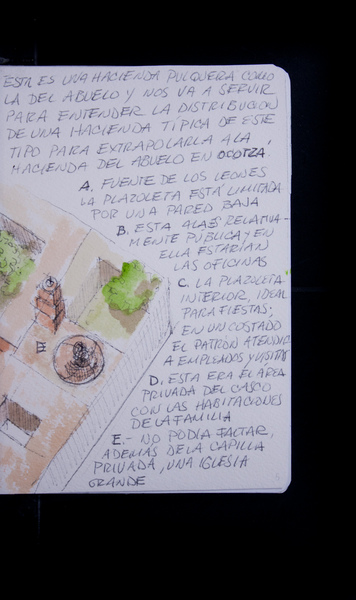 ESTA ES UNA HACIENDA PULQUERA COMO
LA DEL ABUELO Y NOS VA A SERVIR
PARA ENTENDER LA DISTRIBUCION
DE UNA HACIENDA TÍPICA DE ESTE
TIPO PARA EXTRAPOLARLA A LA
HACIENDA DEL ABUELO EN OCOTZA.
A. FUENTE DE LOS LEONES
LA PLAZOLETA ESTÁ LIMITADA
POR UNA PARED BAJA
B. ESTA ALA ES RELATIVA-
MENTE PÚBLICA Y EN
ELLA ESTARÍAN
LAS OFICINAS
C. LA PLAZOLETA
INTERIOR, IDEAL
PARA FIESTAS;
EN UN COSTADO
EL PATRÓN ATENDÍA
A EMPLEADOS Y VISITAS
D. ESTA ERA EL AREA
PRIVADA DEL CASCO
CON LAS HABITACIONES
DE LA FAMILIA
E.- NO PODÍA FALTAR,
ADEMÁS DE LA CAPILLA
PRIVADA, UNA IGLESIA
GRANDE